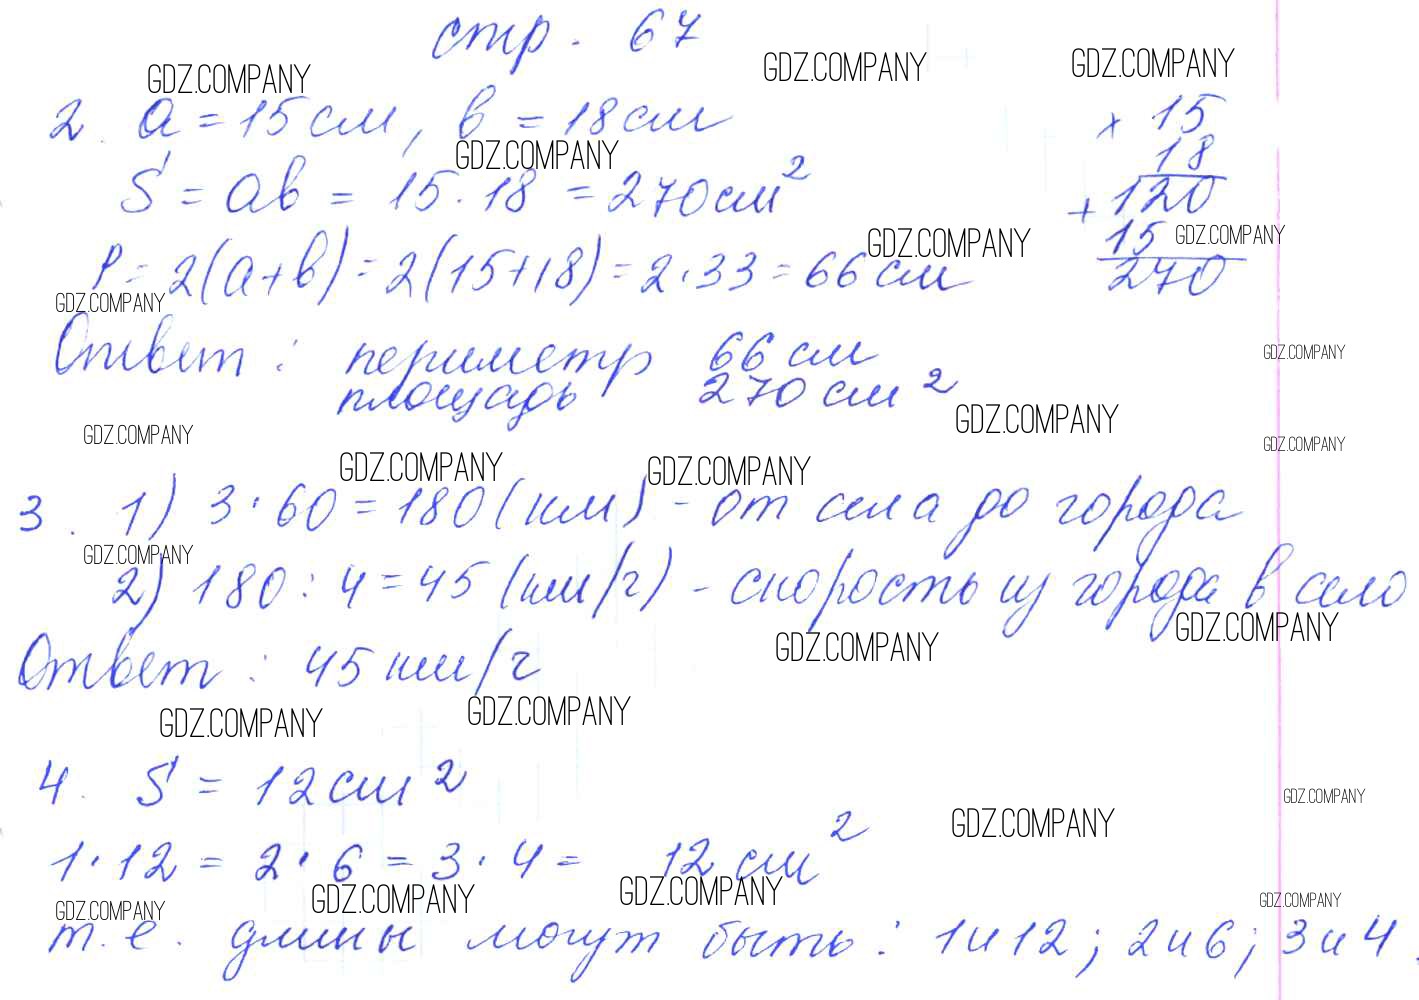 стр. 67
GDZ.COMPANY GDZ.COMPANY GDZ.COMPANY
2. a = 15 см, b = 18 см
× 15
GDZ.COMPANY
18
S = ab = 15 · 18 = 270 см²
+ 120
15 GDZ.COMPANY
GDZ.COMPANY
P = 2(a+b) = 2(15+18) = 2 · 33 = 66 см
270
GDZ.COMPANY
Ответ: периметр 66 см
GDZ.COMPANY
площадь 270 см²
GDZ.COMPANY
GDZ.COMPANY GDZ.COMPANY
GDZ.COMPANY GDZ.COMPANY
3. 1) 3 · 60 = 180 (км) - от села до города
GDZ.COMPANY
2) 180 : 4 = 45 (км/ч) - скорость из города в село
GDZ.COMPANY GDZ.COMPANY
Ответ: 45 км/ч
GDZ.COMPANY GDZ.COMPANY
4. S = 12 см²
GDZ.COMPANY
GDZ.COMPANY
1 · 12 = 2 · 6 = 3 · 4 = 12 см²
GDZ.COMPANY GDZ.COMPANY GDZ.COMPANY GDZ.COMPANY
т.е. длины могут быть: 1 и 12; 2 и 6; 3 и 4.